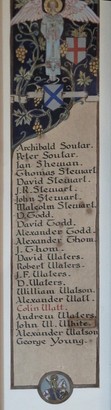 Archibald Soutar.
Peter Soutar.
Ian Shewan.
Thomas Stewart.
David Stewart.
J.R. Stewart.
John Stewart.
Malcolm Stewart.
D. Godd.
David Godd.
Alexander Godd.
Alexander Thom.
J. Thom.
David Waters.
Robert Waters.
J.F. Waters.
D. Waters.
William Watson.
Alexander Watt.
Colin Watt.
Andrew Waters.
John W. White.
Alexander Watson.
George Young.